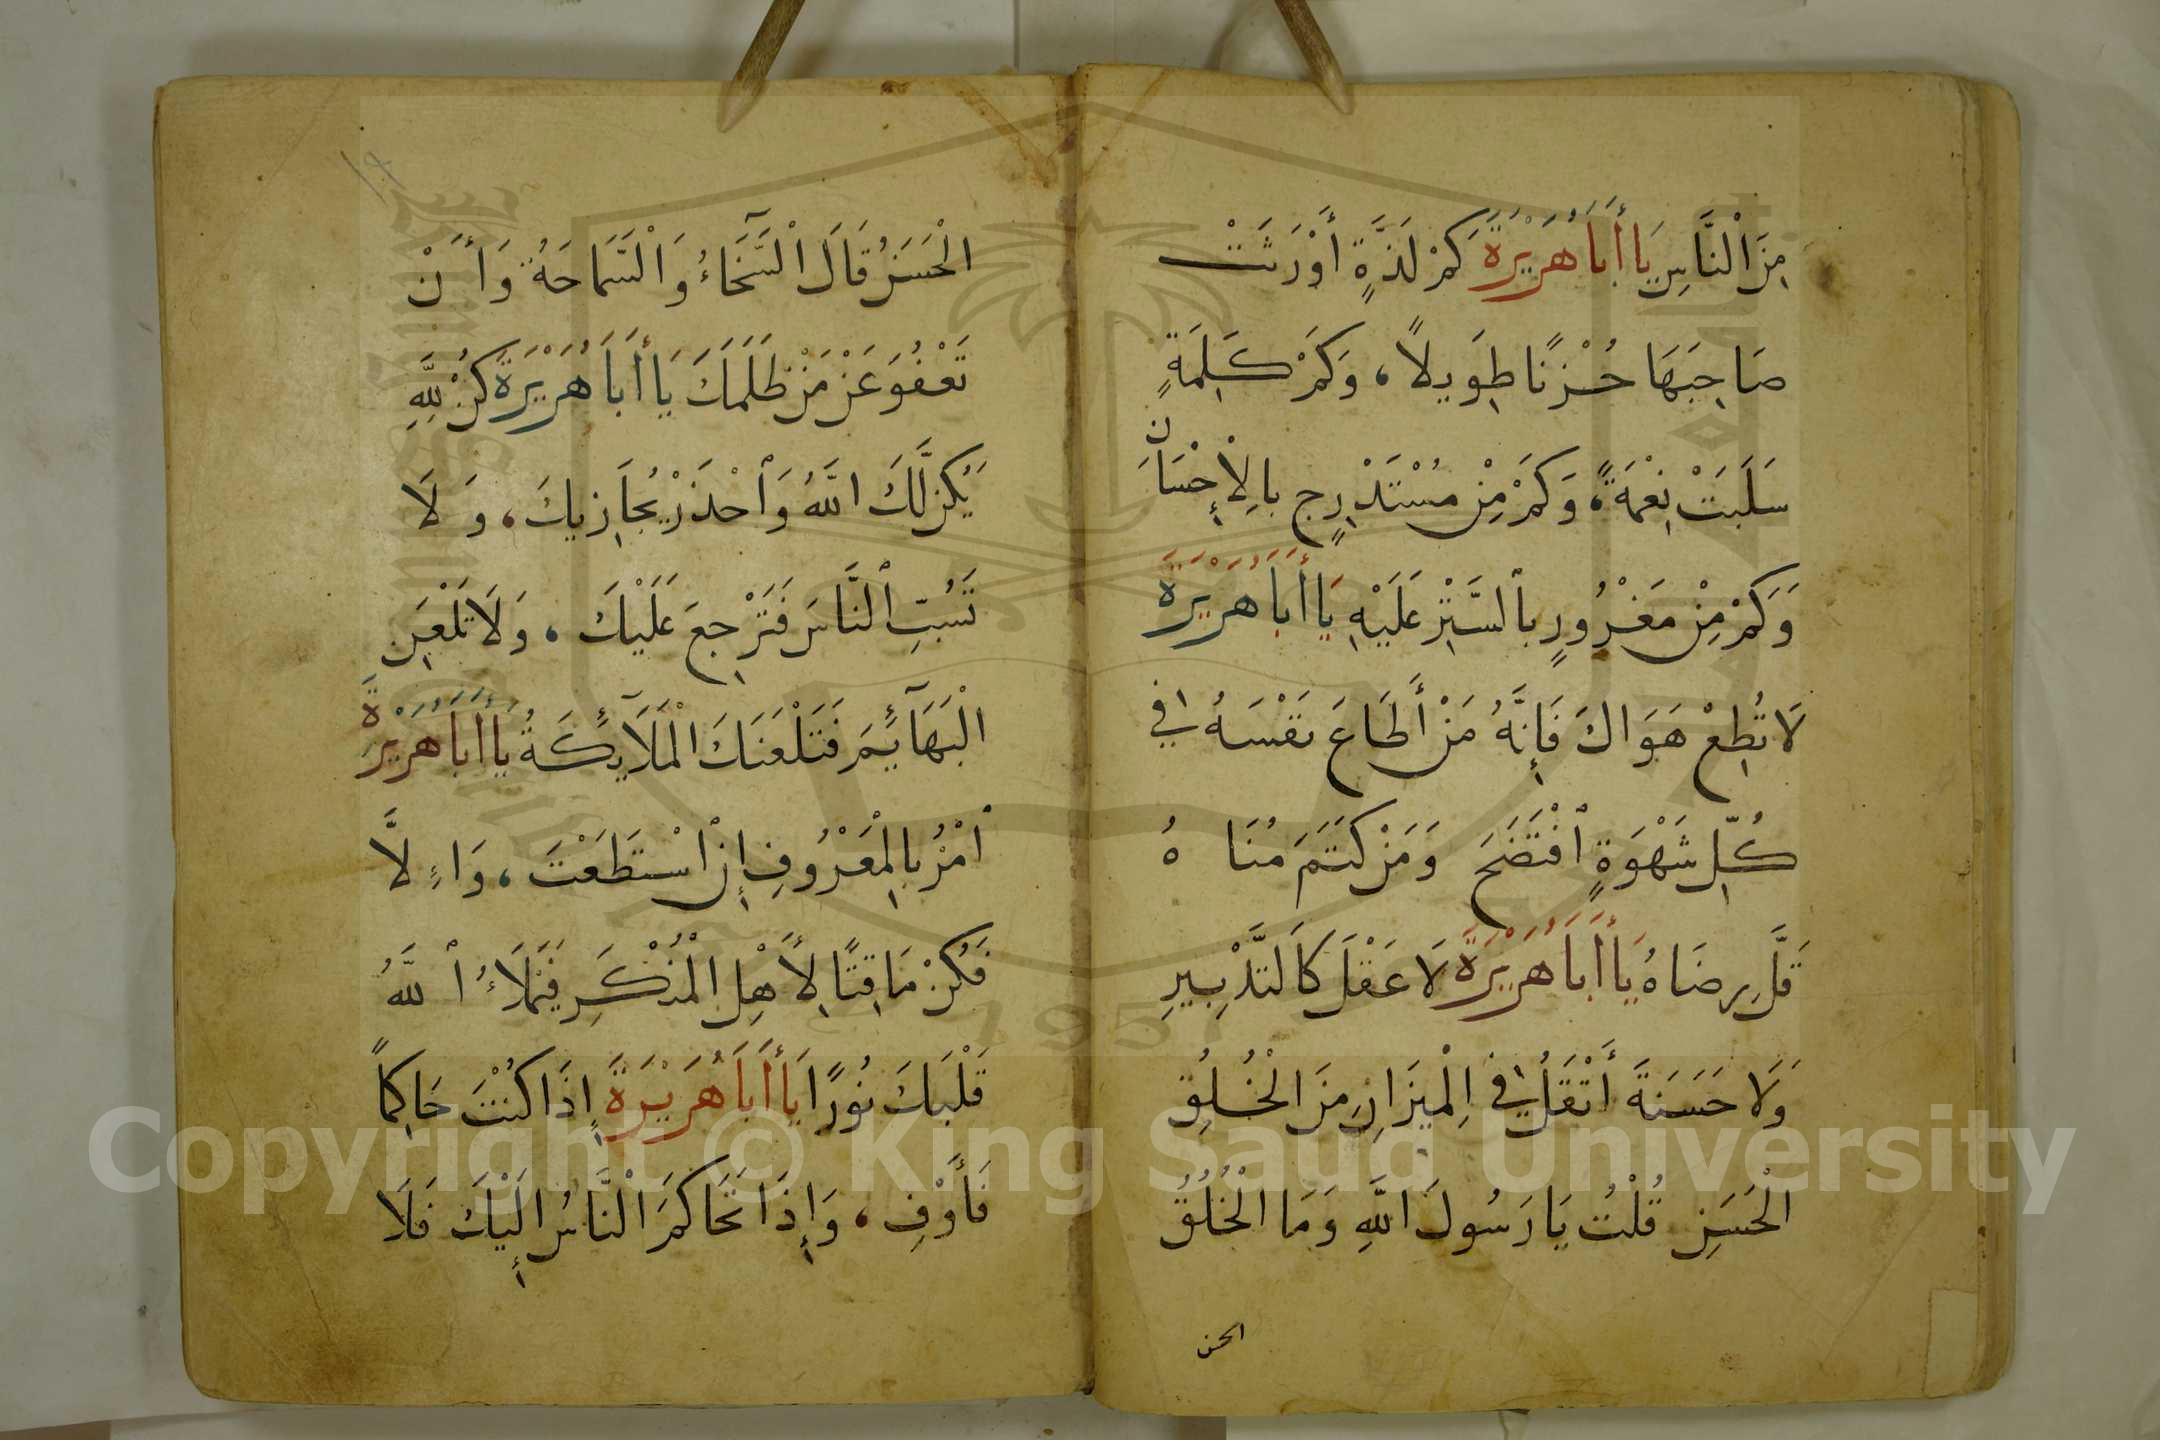 مِنَ الْنَّاسِ يَا أَبَا هُرَيْرَةَ كَمْ لَذَّةٍ أَوْرَثَتْ
صَاحِبَهَا حُزْنًا طَوِيلًا، وَكَمْ كَلِمَةٍ
سَلَبَتْ نِعْمَةً، وَكَمْ مِنْ مُسْتَدْرِجٍ بِالْإِحْسَانِ
وَكَمْ مِنْ مَغْرُورٍ بِالسَّتْرِ عَلَيْهِ يَا أَبَا هُرَيْرَةَ
لَا تُطِعْ هَوَاكَ فَإِنَّهُ مَنْ أَطَاعَ نَفْسَهُ فِي
كُلِّ شَهْوَةٍ افْتَضَحَ وَمَنْ كَتَمَ مُنَاهُ
قَلَّ رِضَاهُ يَا أَبَا هُرَيْرَةَ لَا عَقْلَ كَالتَّدْبِيرِ
وَلَا حَسَنَةَ أَثْقَلُ فِي الْمِيزَانِ مِنَ الْخُلُقِ
الْحَسَنِ قُلْتُ يَا رَسُولَ اللَّهِ وَمَا الْخُلُقُ
الحسن
١٩
الْحَسَنُ قَالَ السَّخَاءُ وَالْسَّمَاحَةُ وَأَنْ
تَعْفُوَ عَنْ مَنْ ظَلَمَكَ يَا أَبَا هُرَيْرَةَ كُنْ لِلَّهِ
يَكُنْ لَّكَ اللَّهُ وَاحْذَرْ يُجَازِيكَ، وَلَا
تَسُبِّ النَّاسَ فَتَرْجِعَ عَلَيْكَ، وَلَا تَلْعَنِ
الْبَهَآئِمَ فَتَلْعَنَكَ الْمَلَآئِكَةُ يَا أَبَا هُرَيْرَةَ
اْمُرْ بِالْمَعْرُوفِ إِنْ اسْتَطَعْتَ، وَإِلَّا
فَكُنْ مَاقِتًا لِأَهْلِ الْمُنْكَرِ فَيَمْلَاءُ اللَّهُ
قَلْبَكَ نُورًا يَا أَبَا هُرَيْرَةَ إِذَا كُنْتَ حَاكِمًا
فَأَوْفِ، وَإِذَا تَحَاكَمَ الْنَّاسُ إِلَيْكَ فَلَا
Copyright © King Saud University
1957